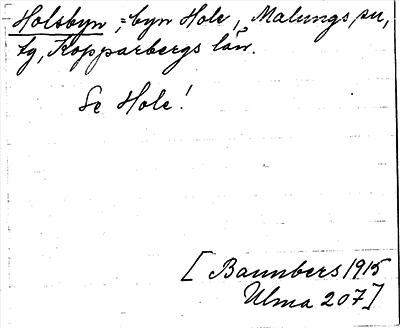 Holsbyn = byn Hole, Malungs sn,
tg, Kopparbergs län.
Se Hole!
[Bannbers 1915
Ulma 207]